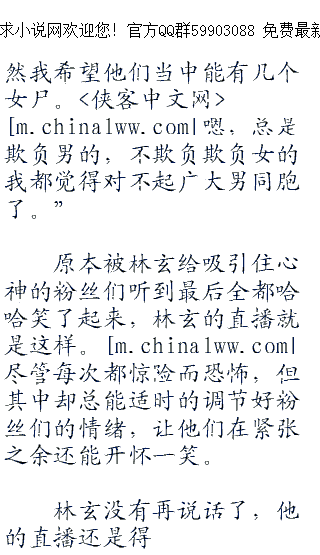 求小说网欢迎您！官方QQ群59903088 免费最新
然我希望他们当中能有几个
女尸。<侠客中文网>
[m.chinalww.com|嗯，总是
欺负男的，不欺负欺负女的
我都觉得对不起广大男同胞
了。”
原本被林玄给吸引住心
神的粉丝们听到最后全都哈
哈笑了起来，林玄的直播就
是这样。[m.chinalww.com|
尽管每次都惊险而恐怖，但
其中却总能适时的调节好粉
丝们的情绪，让他们在紧张
之余还能开怀一笑。
林玄没有再说话了，他
的直播还是得